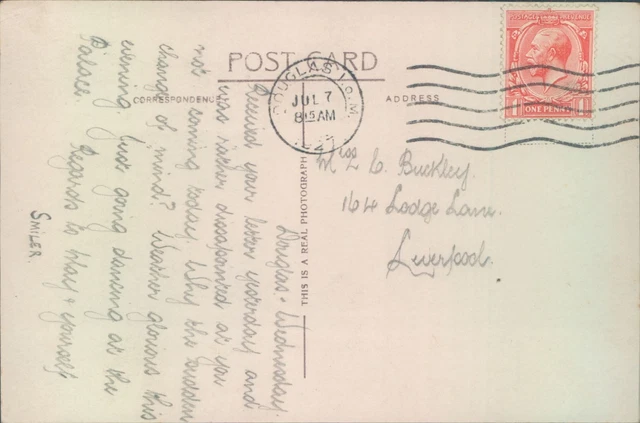 POST CARD
CORRESPONDENCE
ADDRESS
DOUGLAS I.O.M.
JUL 7
8 15 AM
POSTAGE REVENUE
ONE PENNY
THIS IS A REAL PHOTOGRAPH
Miss C. Buckley.
164 Lodge Lane.
Liverpool.
Douglas. Wednesday.
Received your letter yesterday and
was rather dissapointed as you
not coming today. Why the sudden
change of mind? Weather glorious this
evening. Just going dancing at the
Palace.
Regards to May & yourself
SMILER.